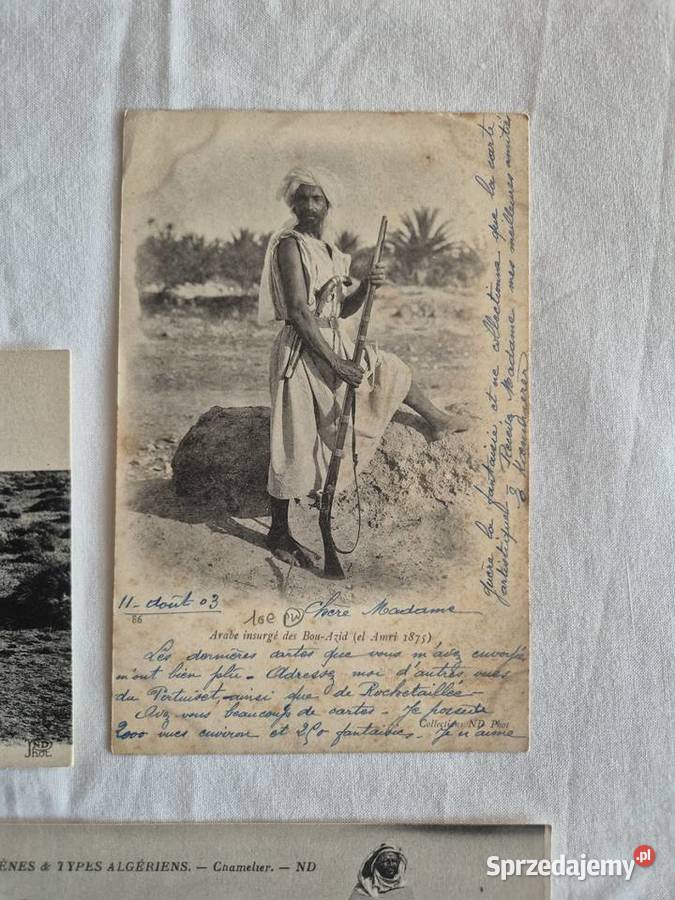 11 - août 03
86
10e
Chère Madame
Arabe insurgé des Bou-Azid (el Amri 1875)
Les dernières cartes que vous m'avez envoyées
m'ont bien plu - Adressez moi d'autres vues
du Pertuiset, ainsi que de Rochetaillée -
Avez vous beaucoup de cartes - Je possède
Collections ND Phot
2000 vues environ et 250 fantaisies - Je n'aime
guère la fantaisie et ne collectionne que la carte
artistique. Recevez Madame mes meilleures amitiés
ND
Phot
ÈNES & TYPES ALGÉRIENS. — Chamelier. — ND
Sprzedajemy.pl